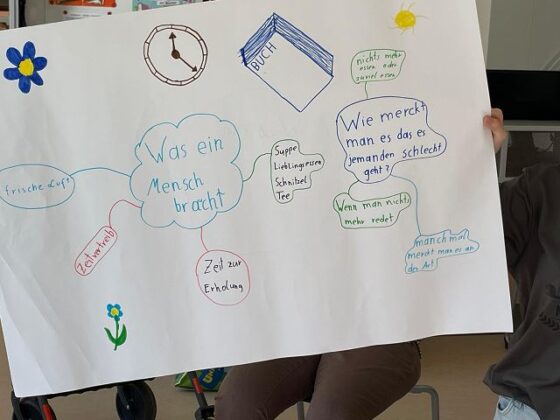 BUCH
nichts mehr
essen oder
zuviel essen
Was ein
Mensch
braucht
frische Luft
Zeitvertreib
Zeit zur
Erholung
Suppe
Lieblingsessen
Schnitzel
Tee
Wie merckt
man es das es
jemanden schlecht
geht?
Wenn man nichts
mehr redet
manchmal
merckt man es an
der Art